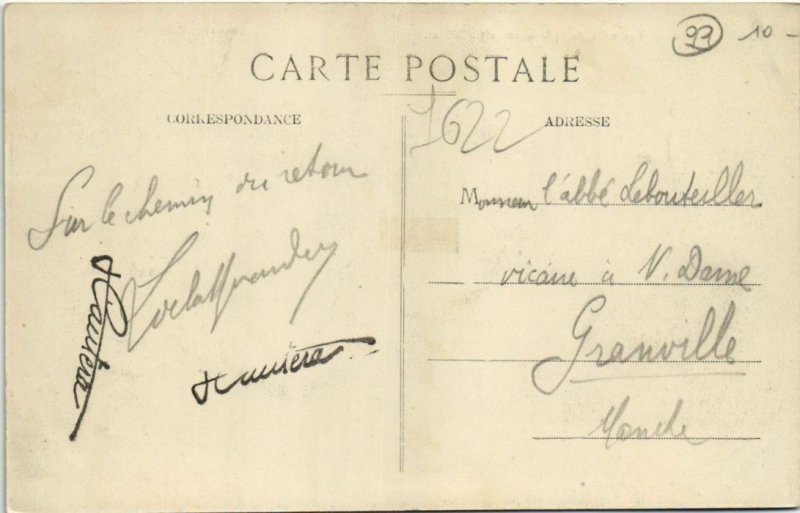 99 10 -
CARTE POSTALE
CORRESPONDANCE
1622
ADRESSE
Sur le chemin du retour
Monsieur l'abbé Lebouteiller
vicaire à N. Dame
Granville
Manche